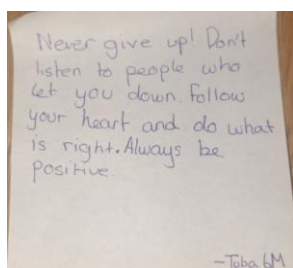 Never give up! Don't
listen to people who
let you down. Follow
your heart and do what
is right. Always be
positive.
-Toba 6M